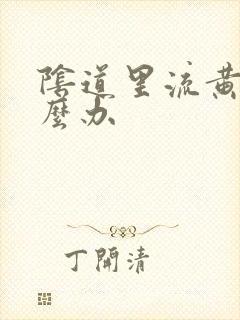 陰道里流黄
麼办
丁開清